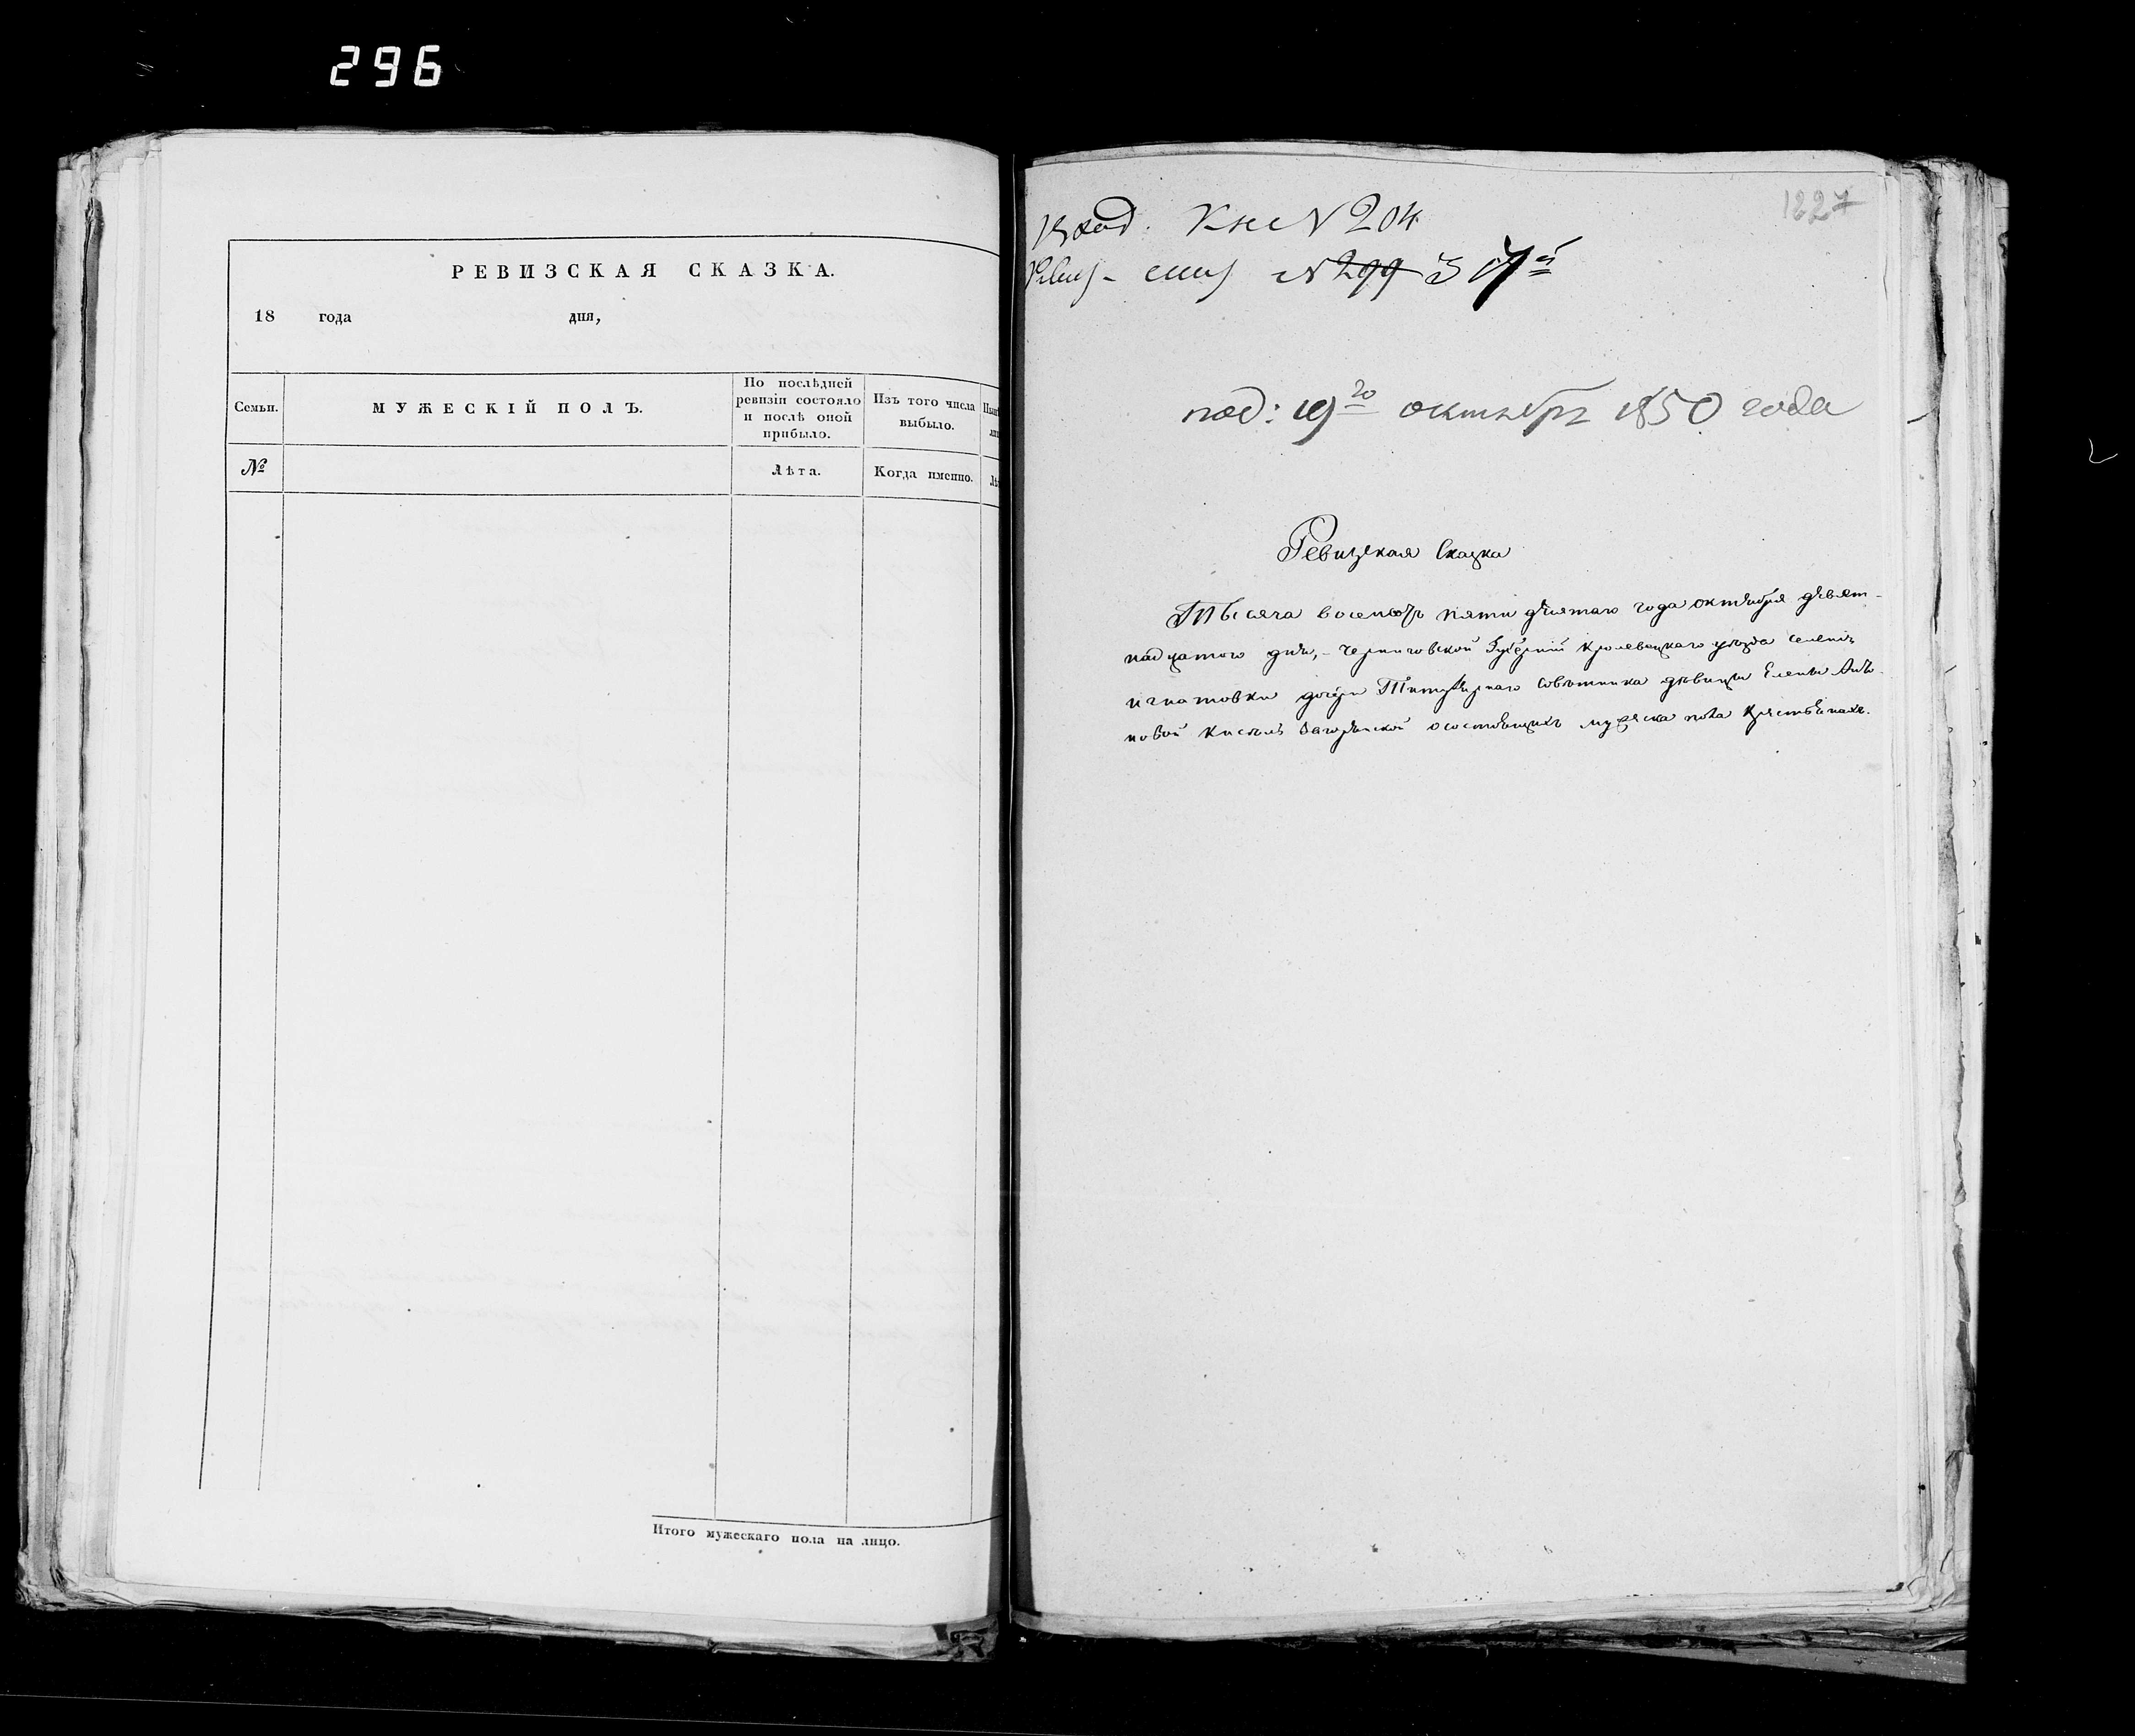 296
РЕВИЗСКАЯ СКАЗКА.
18 года дня,
Семьи.
МУЖЕСКІЙ ПОЛЪ.
По послѣдней ревизіи состояло и послѣ оной прибыло.
Изъ того числа выбыло.
№
Лѣта.
Когда именно.
Итого мужескаго пола на лицо.
1227
Вход. Кн № 204
№ 299
под: 19го октября 1850 года
Ревизская Сказка
Тысяча восемсотъ пятидесятаго года октября девят-
надцатого дня,- Черниговской Губерніи Кролевецкаго уѣзда селенія
Игнатовки дочери Титулярнаго Совѣтника дѣвицы Елены
новой состоящихъ мужеска пола крестьянахъ.